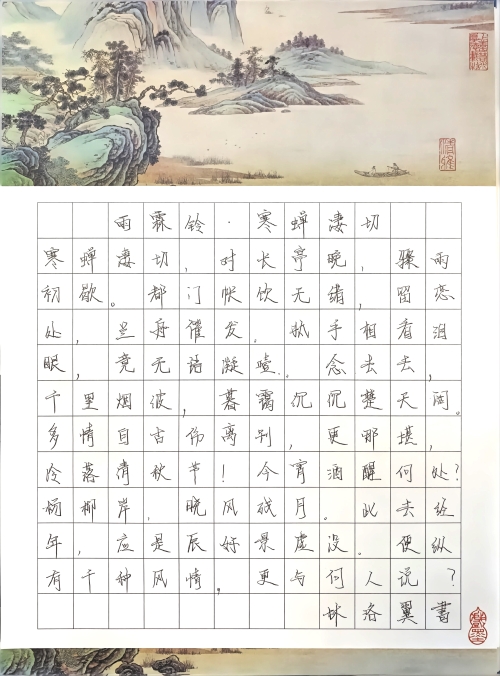 雨霖铃·寒蝉凄切
寒蝉凄切,对长亭晚,骤雨
初歇。都门帐饮无绪,留恋
处,兰舟催发。执手相看泪
眼,竟无语凝噎。念去去,
千里烟波,暮霭沉沉楚天阔。
多情自古伤离别,更那堪,
冷落清秋节!今宵酒醒何处?
杨柳岸,晓风残月。此去经
年,应是辰好景虚没。便纵
有千种风情,更与何人说?
洛翼書